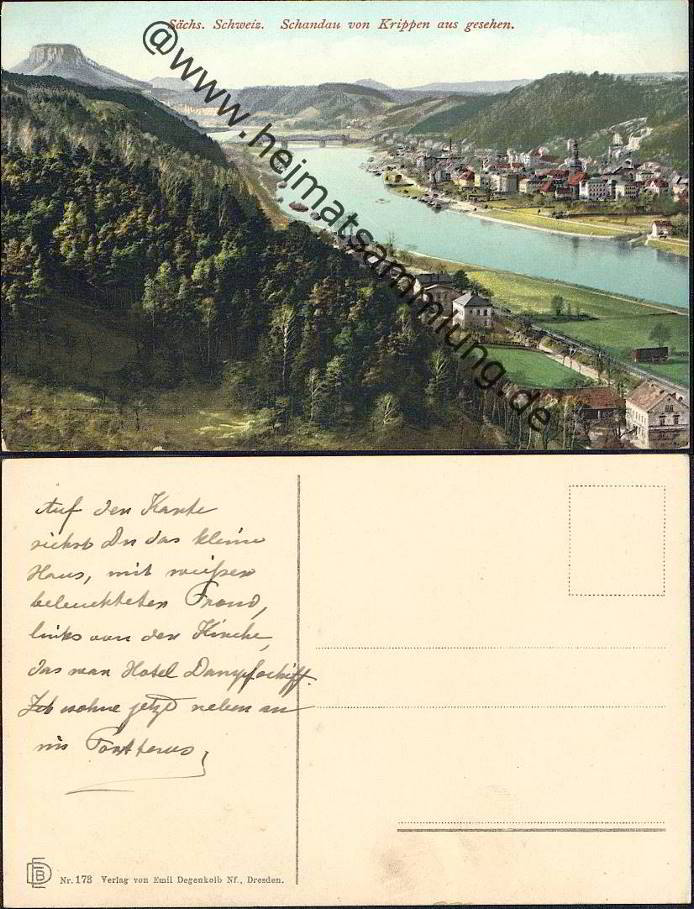 Sächs. Schweiz. Schandau von Krippen aus gesehen.
@www.heimatsammlung.de
Auf der Karte
siehst Du das kleine
Haus, mit weißer
beleuchteter Front,
links von der Kirche,
das war Hotel Dampfschiff.
Ich wohne jetzt neben an
im Forsthaus
Nr. 173 Verlag von Emil Degenkolb Nf., Dresden.